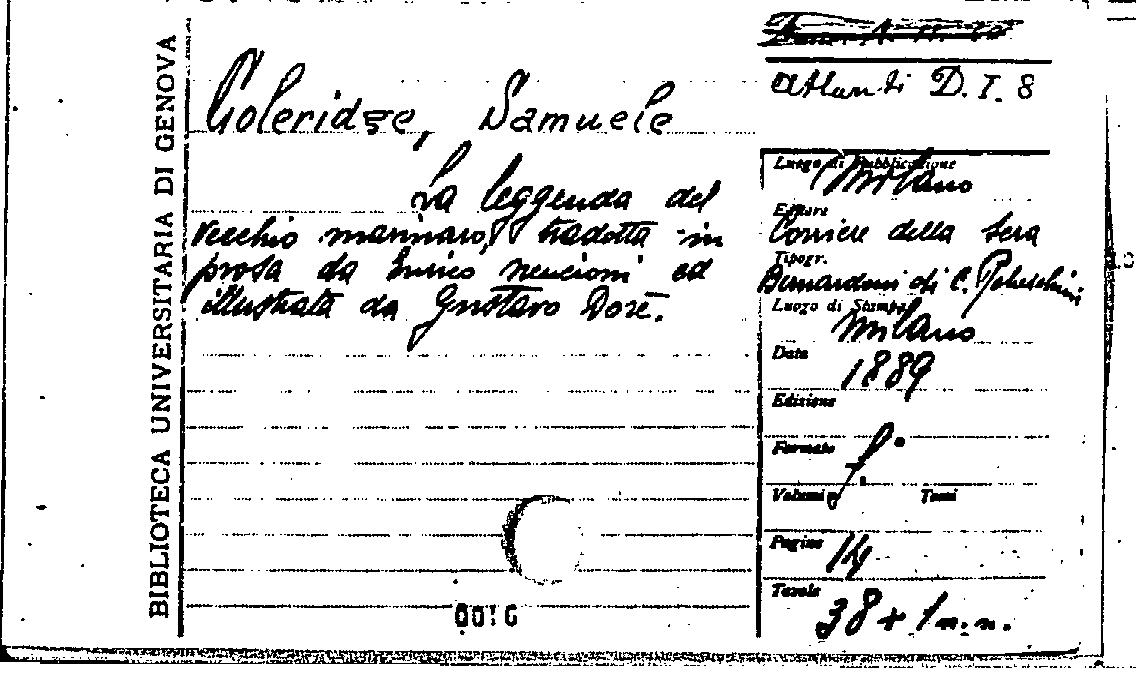 BIBLIOTECA UNIVERSITARIA DI GENOVA
Coleridge, Samuele
La leggenda del
vecchio marinaro, tradotta in
prosa da Enrico Nencioni ed
illustrata da Gustavo Dorè.
00!6
Atlanti D. I. 8
Luogo di Pubblicazione
Milano
Editore
Corriere della Sera
Tipogr.
Bernardoni di C.
Luogo di Stampa
Milano
Data
1889
Edizione
Formato
f.°
Volumi Tomi
Pagine
14
Tavole
38 + 1 n. n.